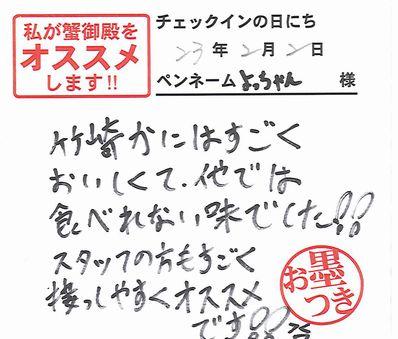 私が蟹御殿を
オススメ
します!!
チェックインの日にち
23年2月2日
ペンネームよっちゃん 様
竹崎かにはすごく
おいしくて、他では
食べれない味でした!!
スタッフの方もすごく
接っしやすくオススメ
です!!
お墨
つき